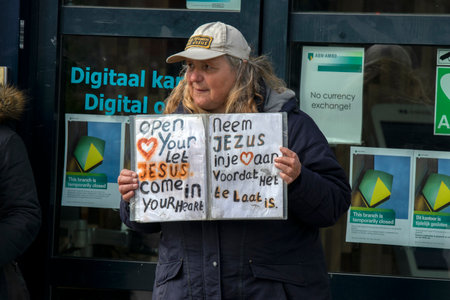 Digitaal kan
Digital o
ABN·AMRO
No currency
exchange!
open
Your
let
JESUS
come in
YOUR HEART
Neem
JEZUS
in je haar
Voordat
HET
te Laat is.
This branch is
temporarily closed
This branch is
temporarily closed
This branch is
temporarily closed
Dit kantoor is
tijdelijk gesloten
A